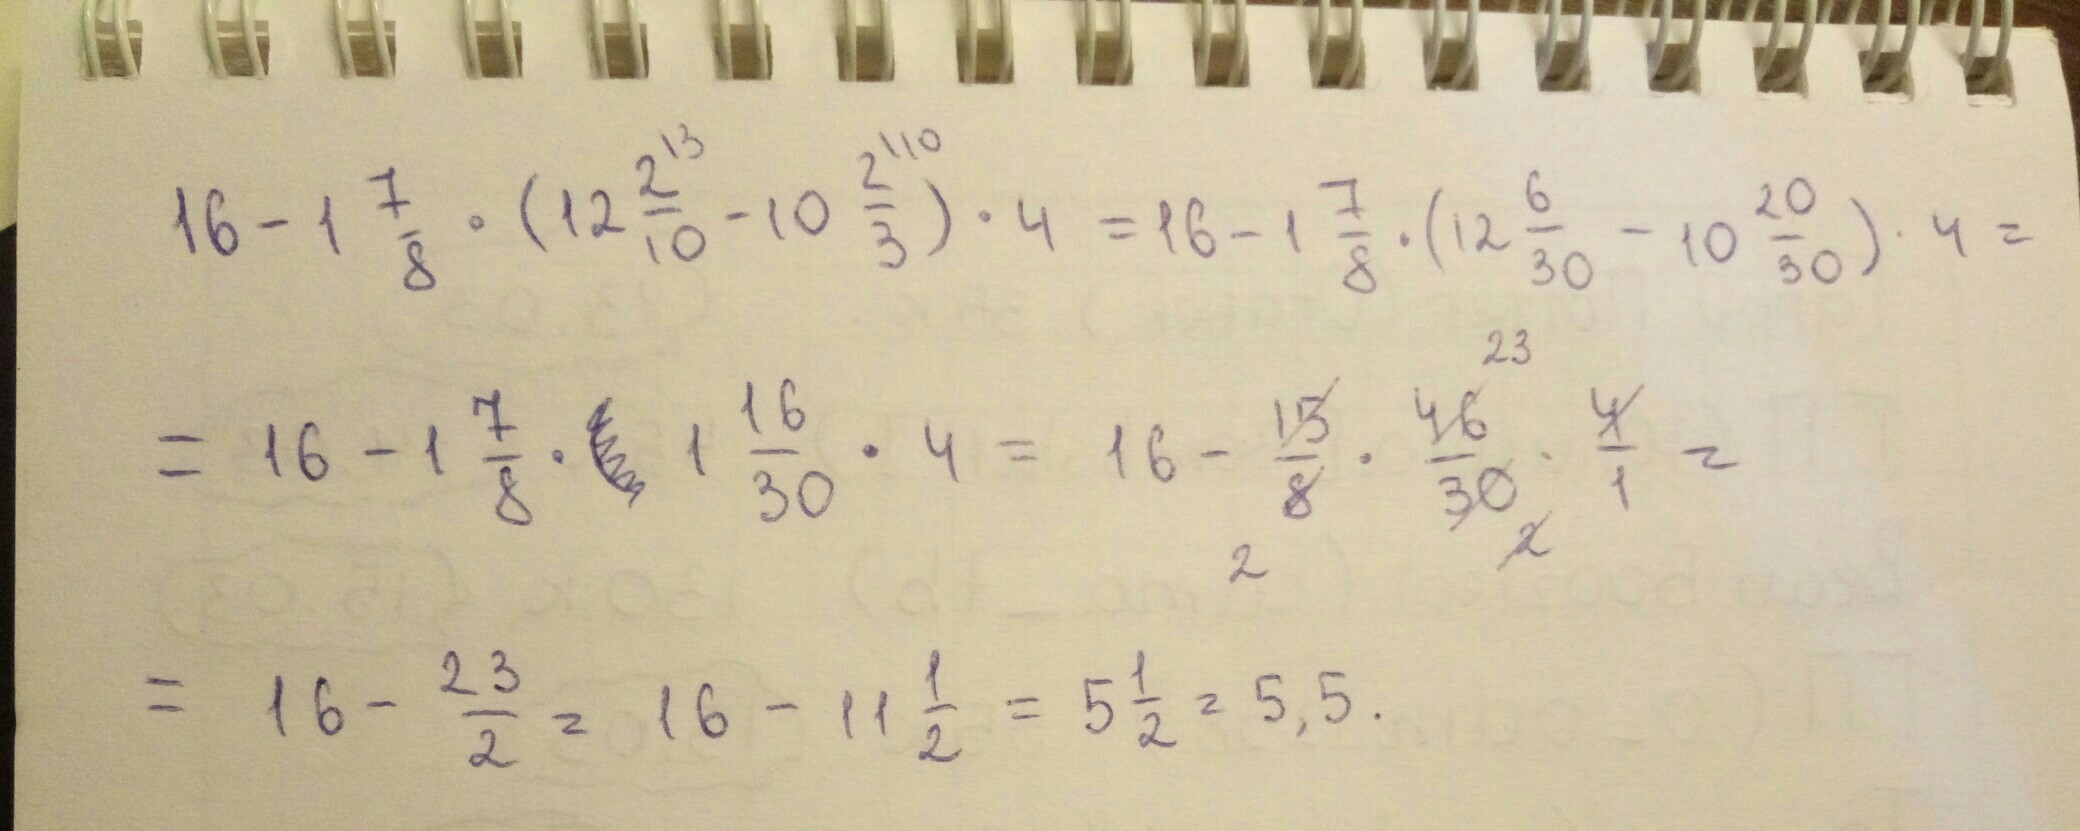 16 - 1 7/8 · (12 2/10 \3 - 10 2/3 \10) · 4 = 16 - 1 7/8 · (12 6/30 - 10 20/30) · 4 =
= 16 - 1 7/8 · 1 16/30 · 4 = 16 - 15/8 · 46/30 · 4/1 =
23
2 2
= 16 - 23/2 = 16 - 11 1/2 = 5 1/2 = 5,5.